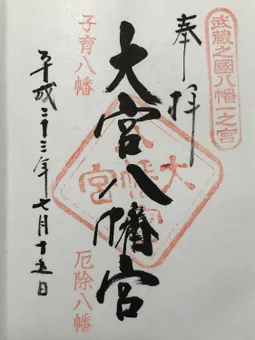 武蔵之國八幡一之宮
奉拝
大宮八幡宮
子育八幡
厄除八幡
平成二十三年七月十五日